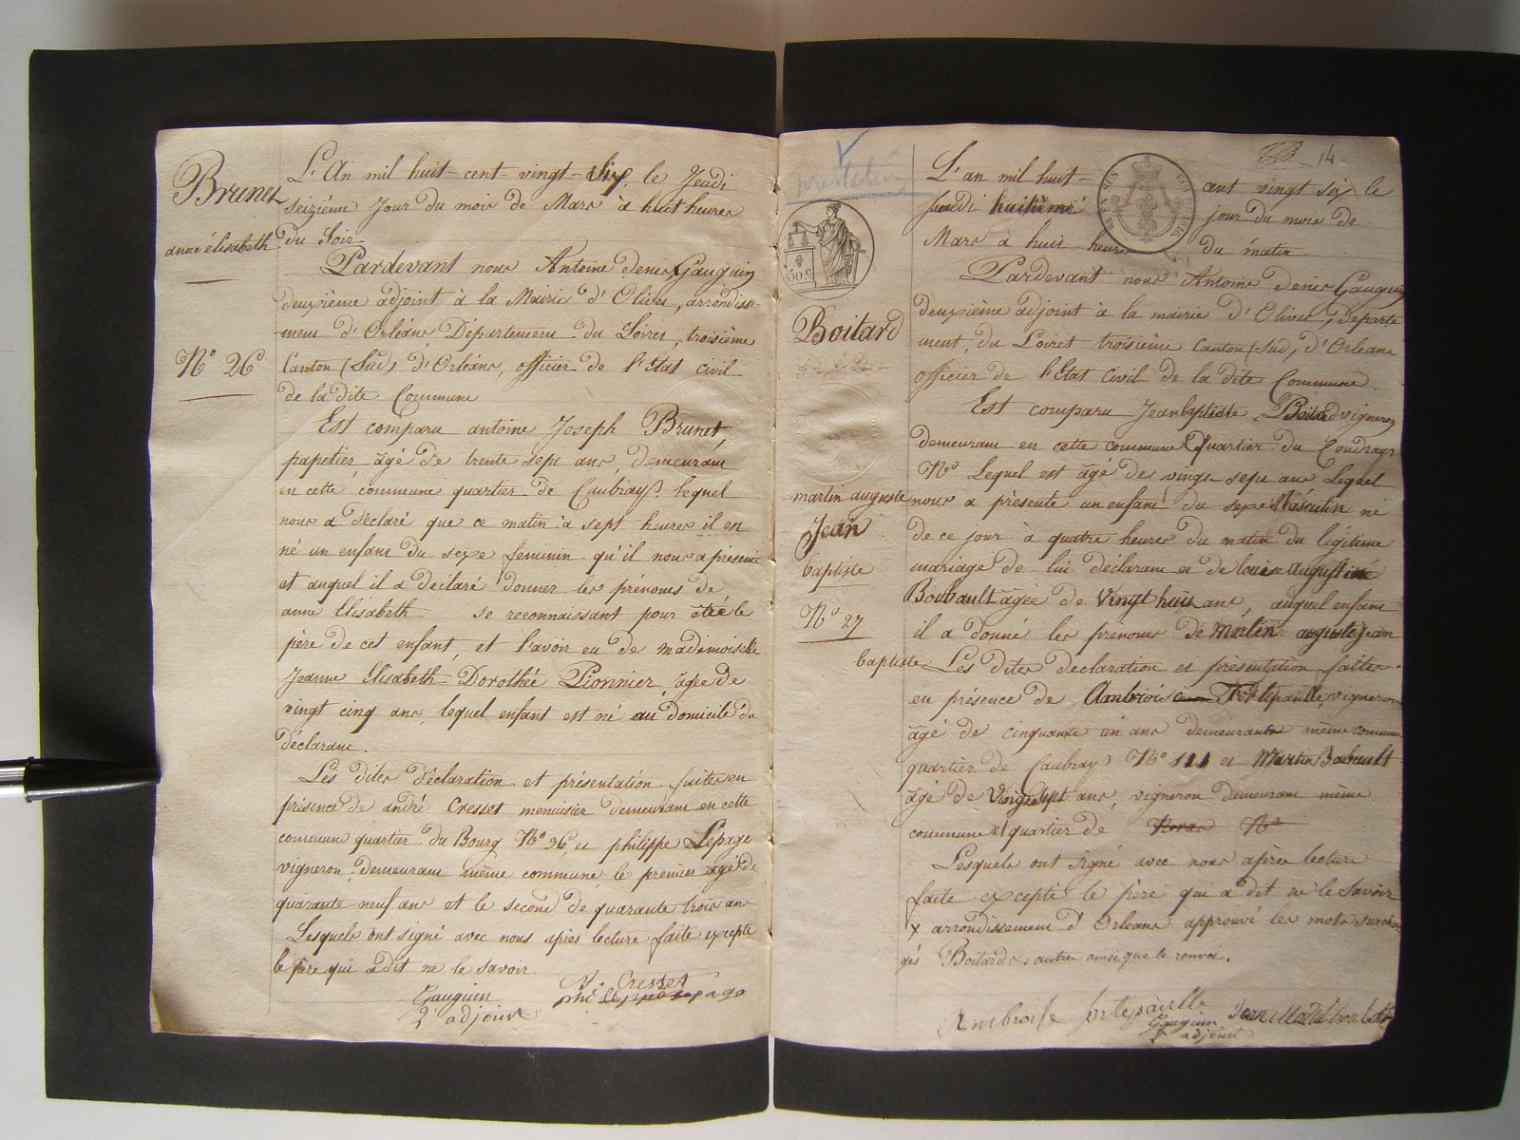 Brunet
anne élisabeth
N° 26
L'An mil huit-cent-vingt-Six, le Jeudi
seizième Jour du mois de Mars à huit heures
du Soir
Pardevant nous Antoine denis Gauguin
deuxième adjoint à la Mairie d'Olivet, arrondisse-
-ment d'Orléans Département du Loiret, troisième
Canton (Sud) d'Orléans, officier de l'Etat civil
de la dite Commune
Est comparu antoine Joseph Brunet,
papetier, âgé de trente sept ans, demeurant
en cette commune quartier de Caubray. lequel
nous a déclaré que ce matin à sept heures il en
né un enfant du sexe feminin qu'il nous a présenté
et auquel il a declaré donner les prénoms de
anne Elisabeth se reconnaissant pour être le
père de cet enfant, et l'avoir eu de mademoiselle
Jeanne Elisabeth Dorothée Pionnier, âgée de
vingt cinq ans, lequel enfant est né au domicile du
déclarant.
Les dites déclaration et présentation faites en
présence de andré Cresset menuisier demeurant en cette
commune quartier du Bourg N° 26, et philippe Lepage
vigneron, demeurant même commune, le premier âgé de
quarante-neuf ans et le second de quarante trois ans
Lesquels ont signé avec nous après lecture faite excepté
le père qui a dit ne le savoir
A. Cresset
Gauguin
2e adjoint
14
L'an mil huit-cent vingt six le
huitième jour du mois de
Mars à huit heures du matin
Pardevant nous Antoine denis Gauguin
deuxième adjoint à la mairie d'Olivet, departe
ment du Loiret troisième Canton (Sud) d'Orleans
officier de l'Etat Civil de la dite Commune
Boitard
Est comparu Jean baptiste Boitard vigneron
demeurant en cette commune Quartier du Coudray
N° Lequel est âgé de vingt sept ans Lequel
martin auguste
nous a présenté un enfant du sexe Masculin né
Jean
de ce jour à quatre heures du matin du légitime
baptiste
mariage de lui déclarant et de louise augustine
Boubault âgée de Vingt huit ans, auquel enfant
N° 27
il a donné les prénoms de Martin auguste Jean
baptiste Les dites declaration et présentation faites
en présence de Ambroise fortepaulle, vigneron
âgé de cinquante un ans demeurant même commune
quartier de Caubray N° 111 et Martin Boubault
âgé de Vingt Sept ans, vigneron demeurant même
commune quartier de N°
Lesquels ont signé avec nous après lecture
faite excepté le père qui a dit ne le Savoir
x arrondissement d'Orleans approuvé les mots surchar
gés Boitard, autre ainsi que le renvoi.
Ambroise fortepaulle
Gauguin
adjoint